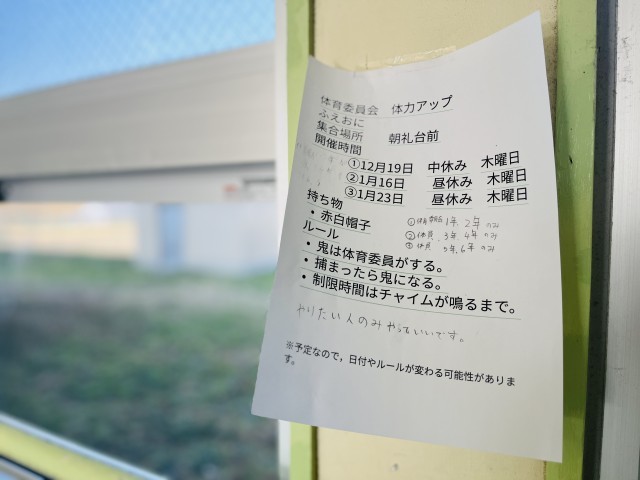 体育委員会　体力アップ
ふえおに
集合場所　　朝礼台前
開催時間
①12月19日　中休み　木曜日
②1月16日　昼休み　木曜日
③1月23日　昼休み　木曜日
持ち物
・赤白帽子
① 1年 2年 のみ
② 体員 3年 4年 のみ
③ 体員 5年 6年 のみ
ルール
・鬼は体育委員がする。
・捕まったら鬼になる。
・制限時間はチャイムが鳴るまで。
やりたい人のみやっていいです。
※予定なので，日付やルールが変わる可能性がありま
す。